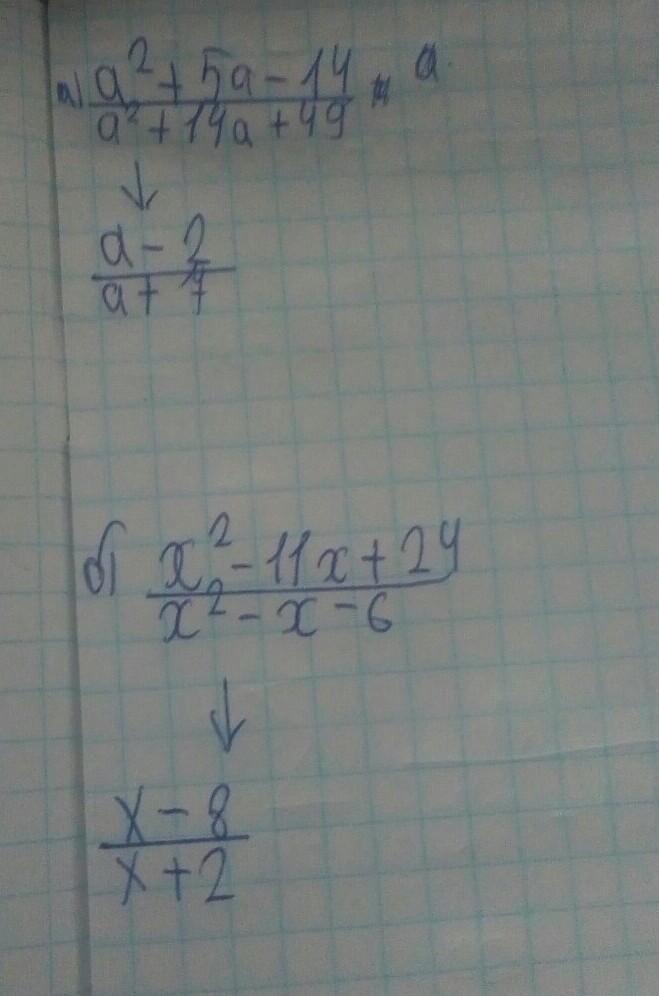 а) a² + 5a - 14 = a
a² + 14a + 49
↓
a - 2
a + 7
б) x² - 11x + 24
x² - x - 6
↓
x - 8
x + 2